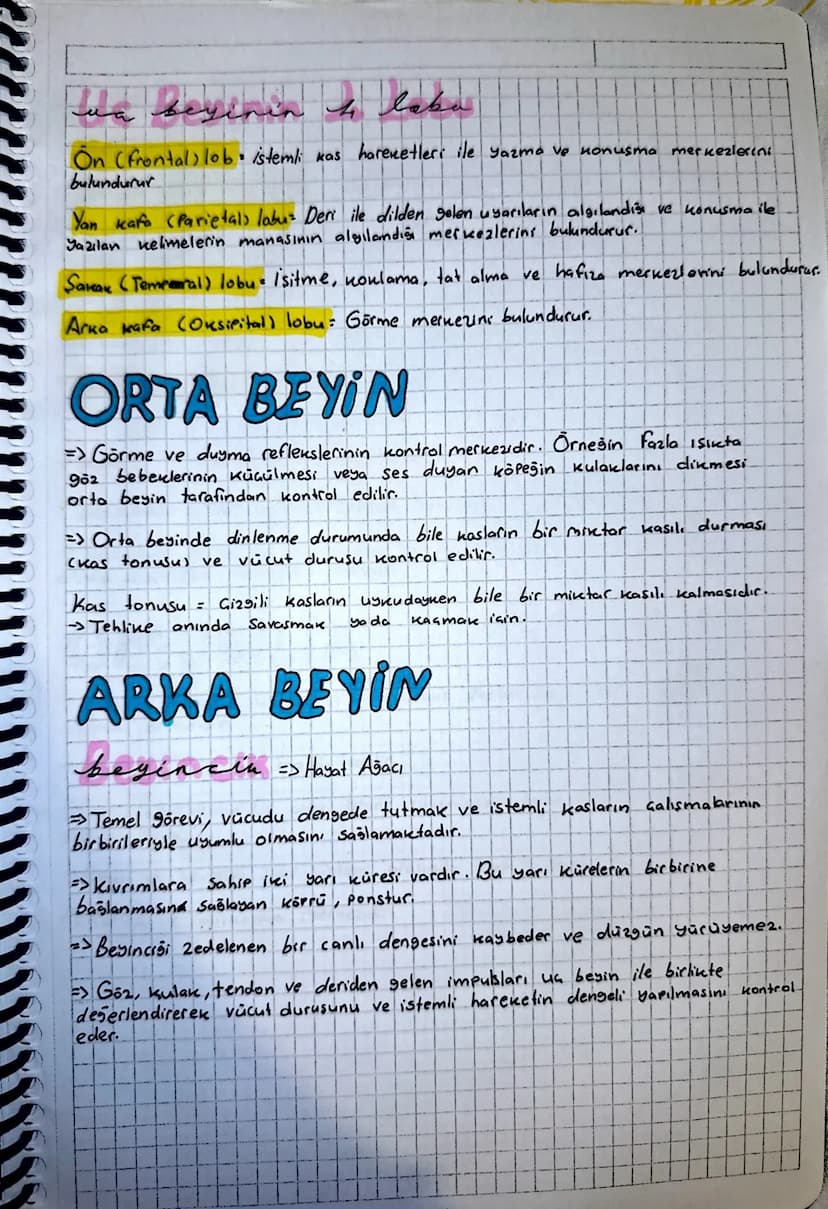 Uç Beyinin 4 lobu
Ön (frontal) lob: istemli kas hareketleri ile yazma ve konuşma merkezlerini
bulundurur
Yan kafa (Parietal) lobu: Deri ile dilden gelen uyarıların algılandığı ve konuşma ile
yazılan kelimelerin manasının algılandığı merkezlerini bulundurur.
Şakak (Temporal) lobu: İşitme, koklama, tat alma ve hafıza merkezlerini bulundurur.
Arka kafa (Oksipital) lobu: Görme merkezini bulundurur.
ORTA BEYİN
=> Görme ve duyma reflekslerinin kontrol merkezidir. Örneğin fazla ışıkta
göz bebeklerinin küçülmesi veya ses duyan köpeğin kulaklarını dikmesi
orta beyin tarafından kontrol edilir.
=> Orta beyinde dinlenme durumunda bile kasların bir miktar kasılı durması
(kas tonusu) ve vücut duruşu kontrol edilir.
Kas tonusu = Çizgili kasların uykudayken bile bir miktar kasılı kalmasıdır.
-> Tehlike anında savaşmak yada kaçmak için.
ARKA BEYİN
beyincik => Hayat Ağacı
=> Temel görevi, vücudu dengede tutmak ve istemli kasların çalışmalarının
birbirileriyle uyumlu olmasını sağlamaktadır.
=> Kıvrımlara sahip iki yarı küresi vardır. Bu yarı kürelerin birbirine
bağlanmasına sağlayan köprü, ponstur.
=> Beyinciği zedelenen bir canlı dengesini kaybeder ve düzgün yürüyemez.
=> Göz, kulak, tendon ve deriden gelen impulsları uç beyin ile birlikte
değerlendirerek vücut duruşunu ve istemli hareketin dengeli yapılmasını kontrol
eder.